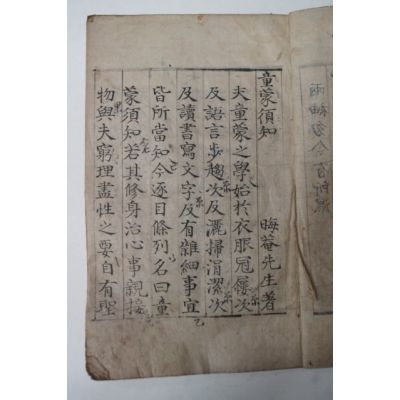 童蒙須知　晦菴先生著
夫童蒙之學始於衣服冠屨次
及語言步趨次及灑掃涓潔次
及讀書寫文字及有雜細事宜
皆所當知今逐目條列名曰童
蒙須知若其修身治心事親接
物與夫窮理盡性之要自有聖